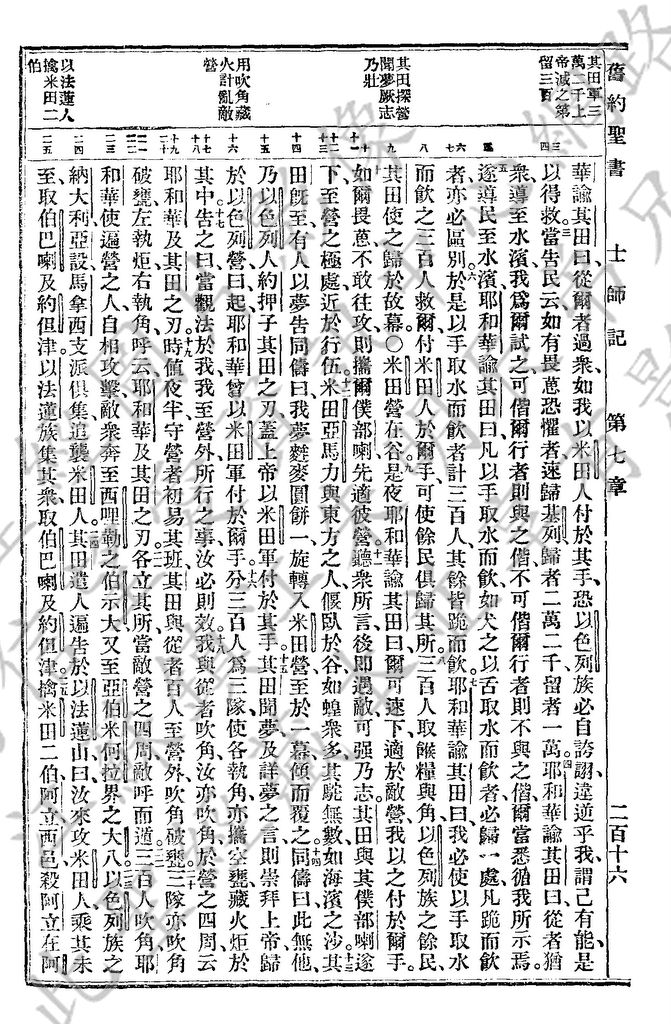 舊約聖書 士師記 第七章 二百十六
其田軍三
萬二千上
帝減之第
留三百
其田探營
聞夢厥志
乃壯
用吹角藏
火計亂敵
營
以法蓮人
擒米田二
伯
華諭其田曰從爾者過衆如我以米田人付於其手恐以色列族必自誇詡違逆乎我謂己有能是
以得救當告民云如有畏葸恐懼者速歸基列歸者二萬二千留者一萬耶和華諭其田曰從者猶
衆導至水濱我爲爾試之可偕爾行者則與之偕不可偕爾行者則不與之偕爾當悉循我所示焉
遂導民至水濱耶和華諭其田曰凡以手取水而飲如犬之以舌取水而飲者必歸一處凡跪而飲
者亦必區別於是以手取水而飲者計三百人其餘皆跪而飲耶和華諭其田曰我必使以手取水
而飲之三百人救爾付米田人於爾手可使餘民俱歸其所三百人取餱糧與角以色列族之餘民
其田使之歸於故幕○米田營在谷是夜耶和華諭其田曰爾可速下適於敵營我以之付於爾手
如爾畏葸不敢往攻則攜爾僕部喇先適彼營聽衆所言後即遇敵可强乃志其田與其僕部喇遂
下至營之極處近於行伍米田亞馬力與東方之人偃臥於谷如蝗衆多其駝無數如海濱之沙其
田旣至有人以夢告同儔曰我夢麰麥圓餅一旋轉入米田營至於一幕傾而覆之同儔曰此無他
乃以色列人約押子其田之刃蓋上帝以米田軍付於其手其田聞夢及詳夢之言則崇拜上帝歸
於以色列營曰起耶和華曾以米田軍付於爾手分三百人爲三隊使各執角亦攜空甕藏火炬於
其中告之曰當觀法於我我至營外所行之事汝必則效我與從者吹角汝亦吹角於營之四周云
耶和華及其田之刃時値夜半守營者初易其班其田與從者百人至營外吹角破甕三隊亦吹角
破甕左執炬右執角呼云耶和華及其田之刃各立其所當敵營之四周敵呼而遁三百人吹角耶
和華使遍營之人自相攻擊敵衆奔至西哩勒之伯示大又至亞伯米何拉界之大八以色列族之
納大利亞設馬拿西支派俱集追襲米田人其田遣人遍告於以法蓮山曰汝來攻米田人乘其未
至取伯巴喇及約但津以法蓮族集其衆取伯巴喇及約但津擒米田二伯阿立西邑殺阿立在阿